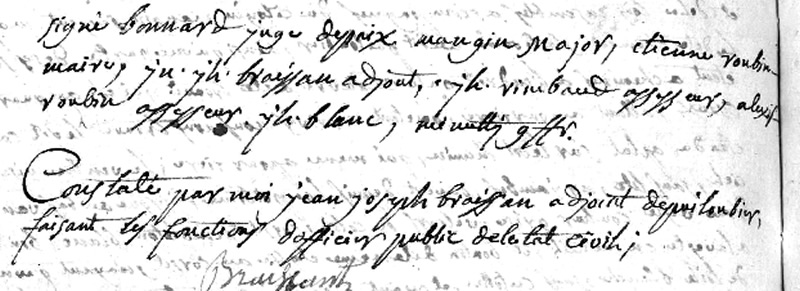 signé bonnard juge depaix mangin major, etienne roubin
maire, jn. jh. braissan adjoint, jh. rimbaud assesseur, alexis
roubin assesseur. jh. blanc, minutty gffr.
Constaté par moi jean joseph braissan adjoint depuiloubier,
faisant les fonctions dofficier public deletat civil;
Braissant